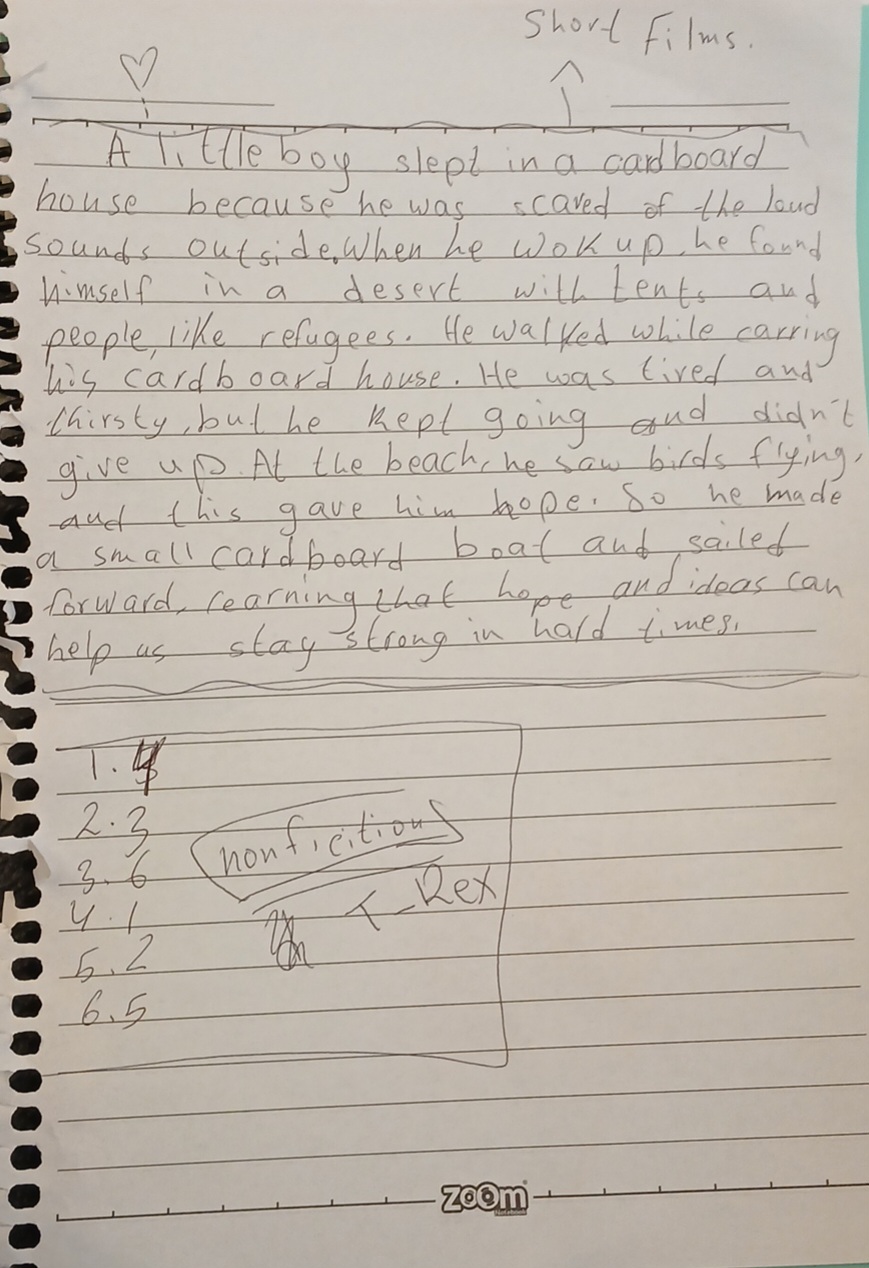 Short Films.
A little boy slept in a cardboard
house because he was scared of the loud
sounds outside. When he wok up, he found
himself in a desert with tents and
people, like refugees. He walked while carring
his cardboard house. He was tired and
thirsty, but he kept going and didn't
give up. At the beach, he saw birds flying,
and this gave him hope. So he made
a small cardboard boat and sailed
forward, learning that hope and ideas can
help us stay strong in hard times.
1. 4
2. 3
nonficition
3. 6
T-Rex
4. 1
5. 2
6. 5
ZOOM